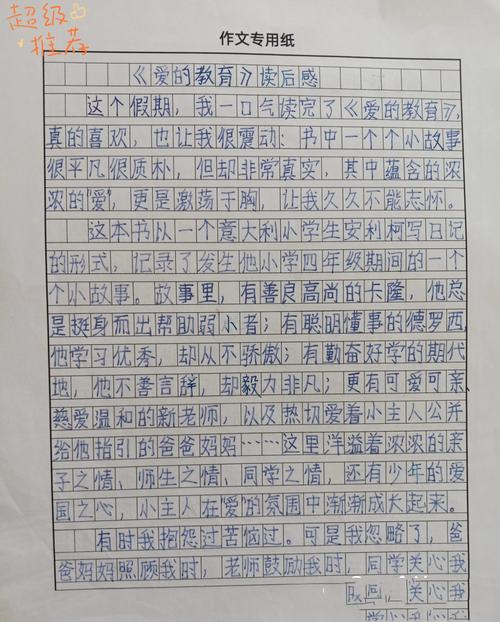 超级
推荐
作文专用纸
《爱的教育》读后感
这个假期，我一口气读完了《爱的教育》，
真的喜欢，也让我很震动：书中一个个小故事
很平凡很质朴，但却非常真实，其中蕴含的浓
浓的“爱”，更是激荡于胸，让我久久不能忘怀。
这本书以一个意大利小学生安利柯写日记
的形式，记录了发生他小学四年级期间的一个
个小故事。故事里，有善良高尚的卡隆，他总
是挺身而出帮助弱小者；有聪明懂事的德罗西，
他学习优秀，却从不骄傲；有勤奋好学的斯代
地，他不善言辞，却毅力非凡；更有可爱可亲、
慈爱温和的新老师，以及热切爱着小主人公并
给他指引的爸爸妈妈……这里洋溢着浓浓的亲
子之情、师生之情、同学之情，还有少年的爱
国之心，小主人在“爱”的氛围中渐渐成长起来。
有时我抱怨过苦恼过。可是我忽略了，爸
爸妈妈照顾我时，老师鼓励我时，同学关心我
关心我